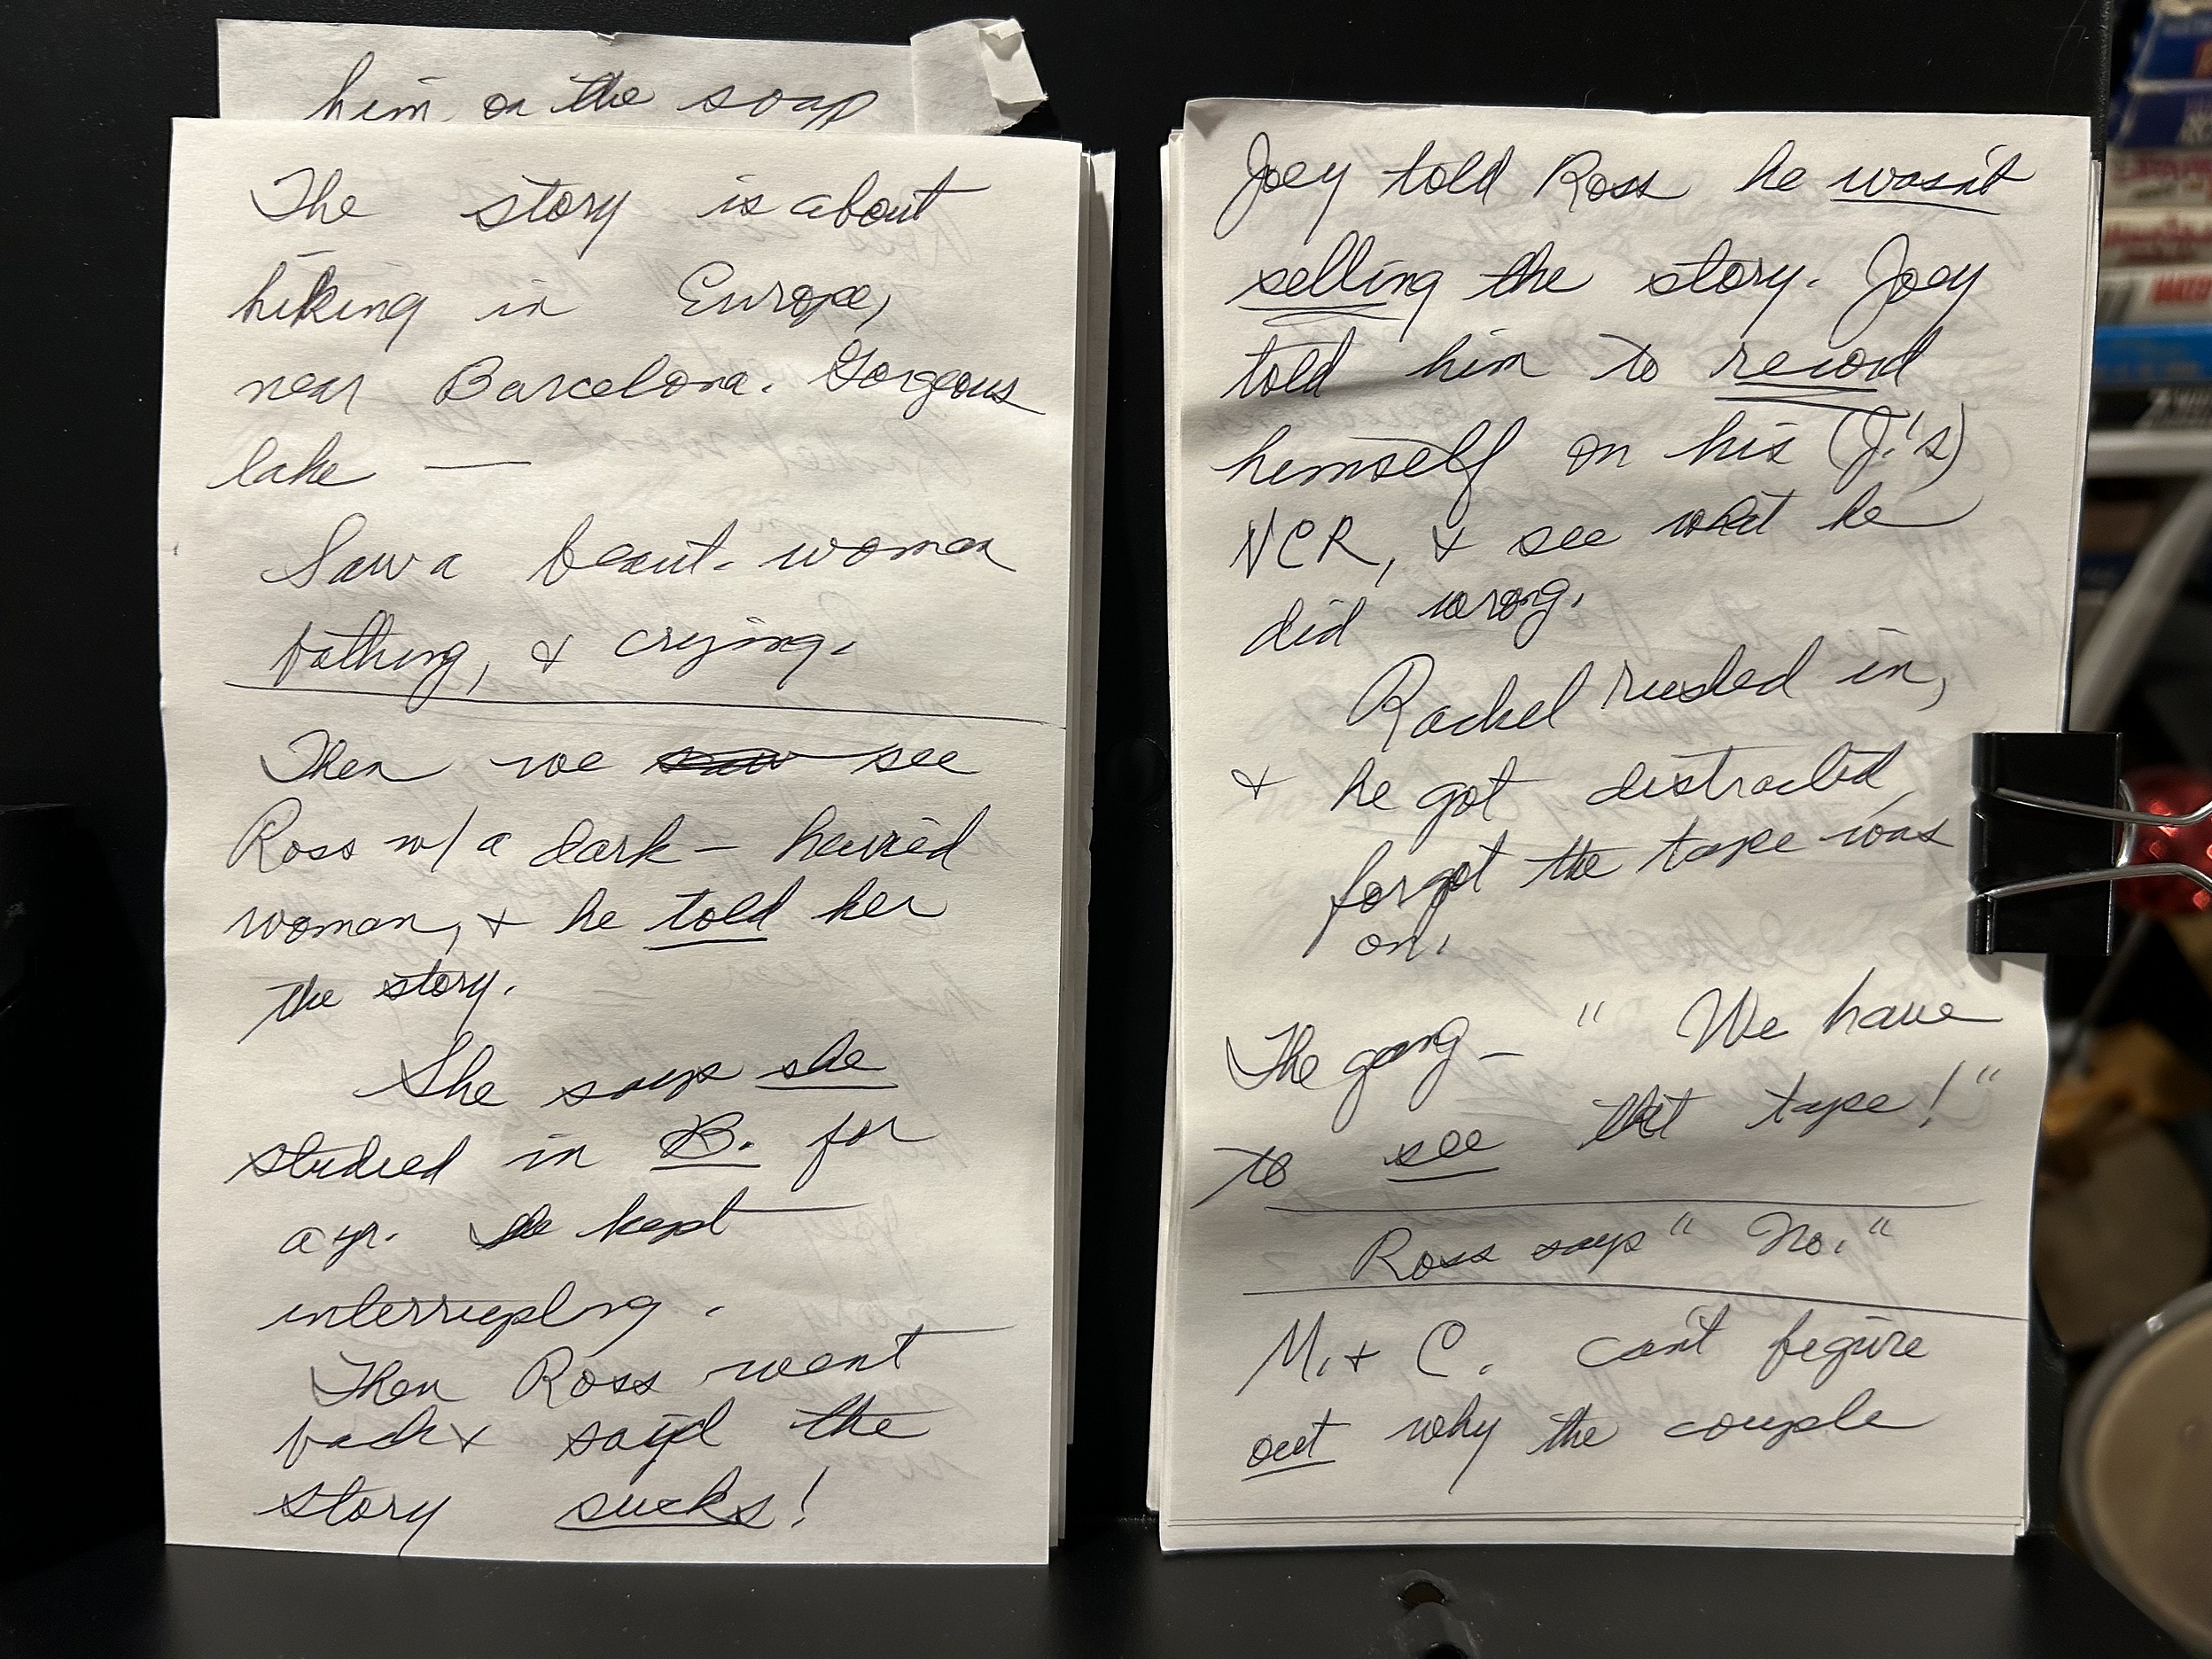 him on the soap
The story is about
hiking in Europe,
near Barcelona. Gorgeous
lake —
Saw a beaut. woman
bathing, & crying.
Then we saw see
Ross w/ a dark - haired
woman, & he told her
the story.
She says she
studied in B. for
a yr. She kept
interrupting.
Then Ross went
back & said the
story sucks!
Joey told Ross he wasn't
selling the story. Joey
told him to record
himself on his (J.'s)
VCR, & see what he
did wrong.
Rachel rushed in,
& he got distracted,
forgot the tape was
on.
The gang - "We have
to see that tape!"
Ross says "No."
M. & C. can't figure
out why the couple